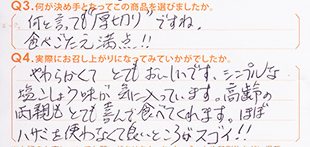 Q3.何が決め手となってこの商品を選びましたか。
何と言っても"厚切り"ですね。
食べごたえ満点!!
Q4.実際にお召し上がりになってみていかがでしたか。
やわらかくてとてもおいしいです、シンプルな
塩こしょう味が気に入っています。高齢の
両親もとても喜んで食べてくれます。ほぼ
ハサミを使わなくて良いところがスゴイ!!